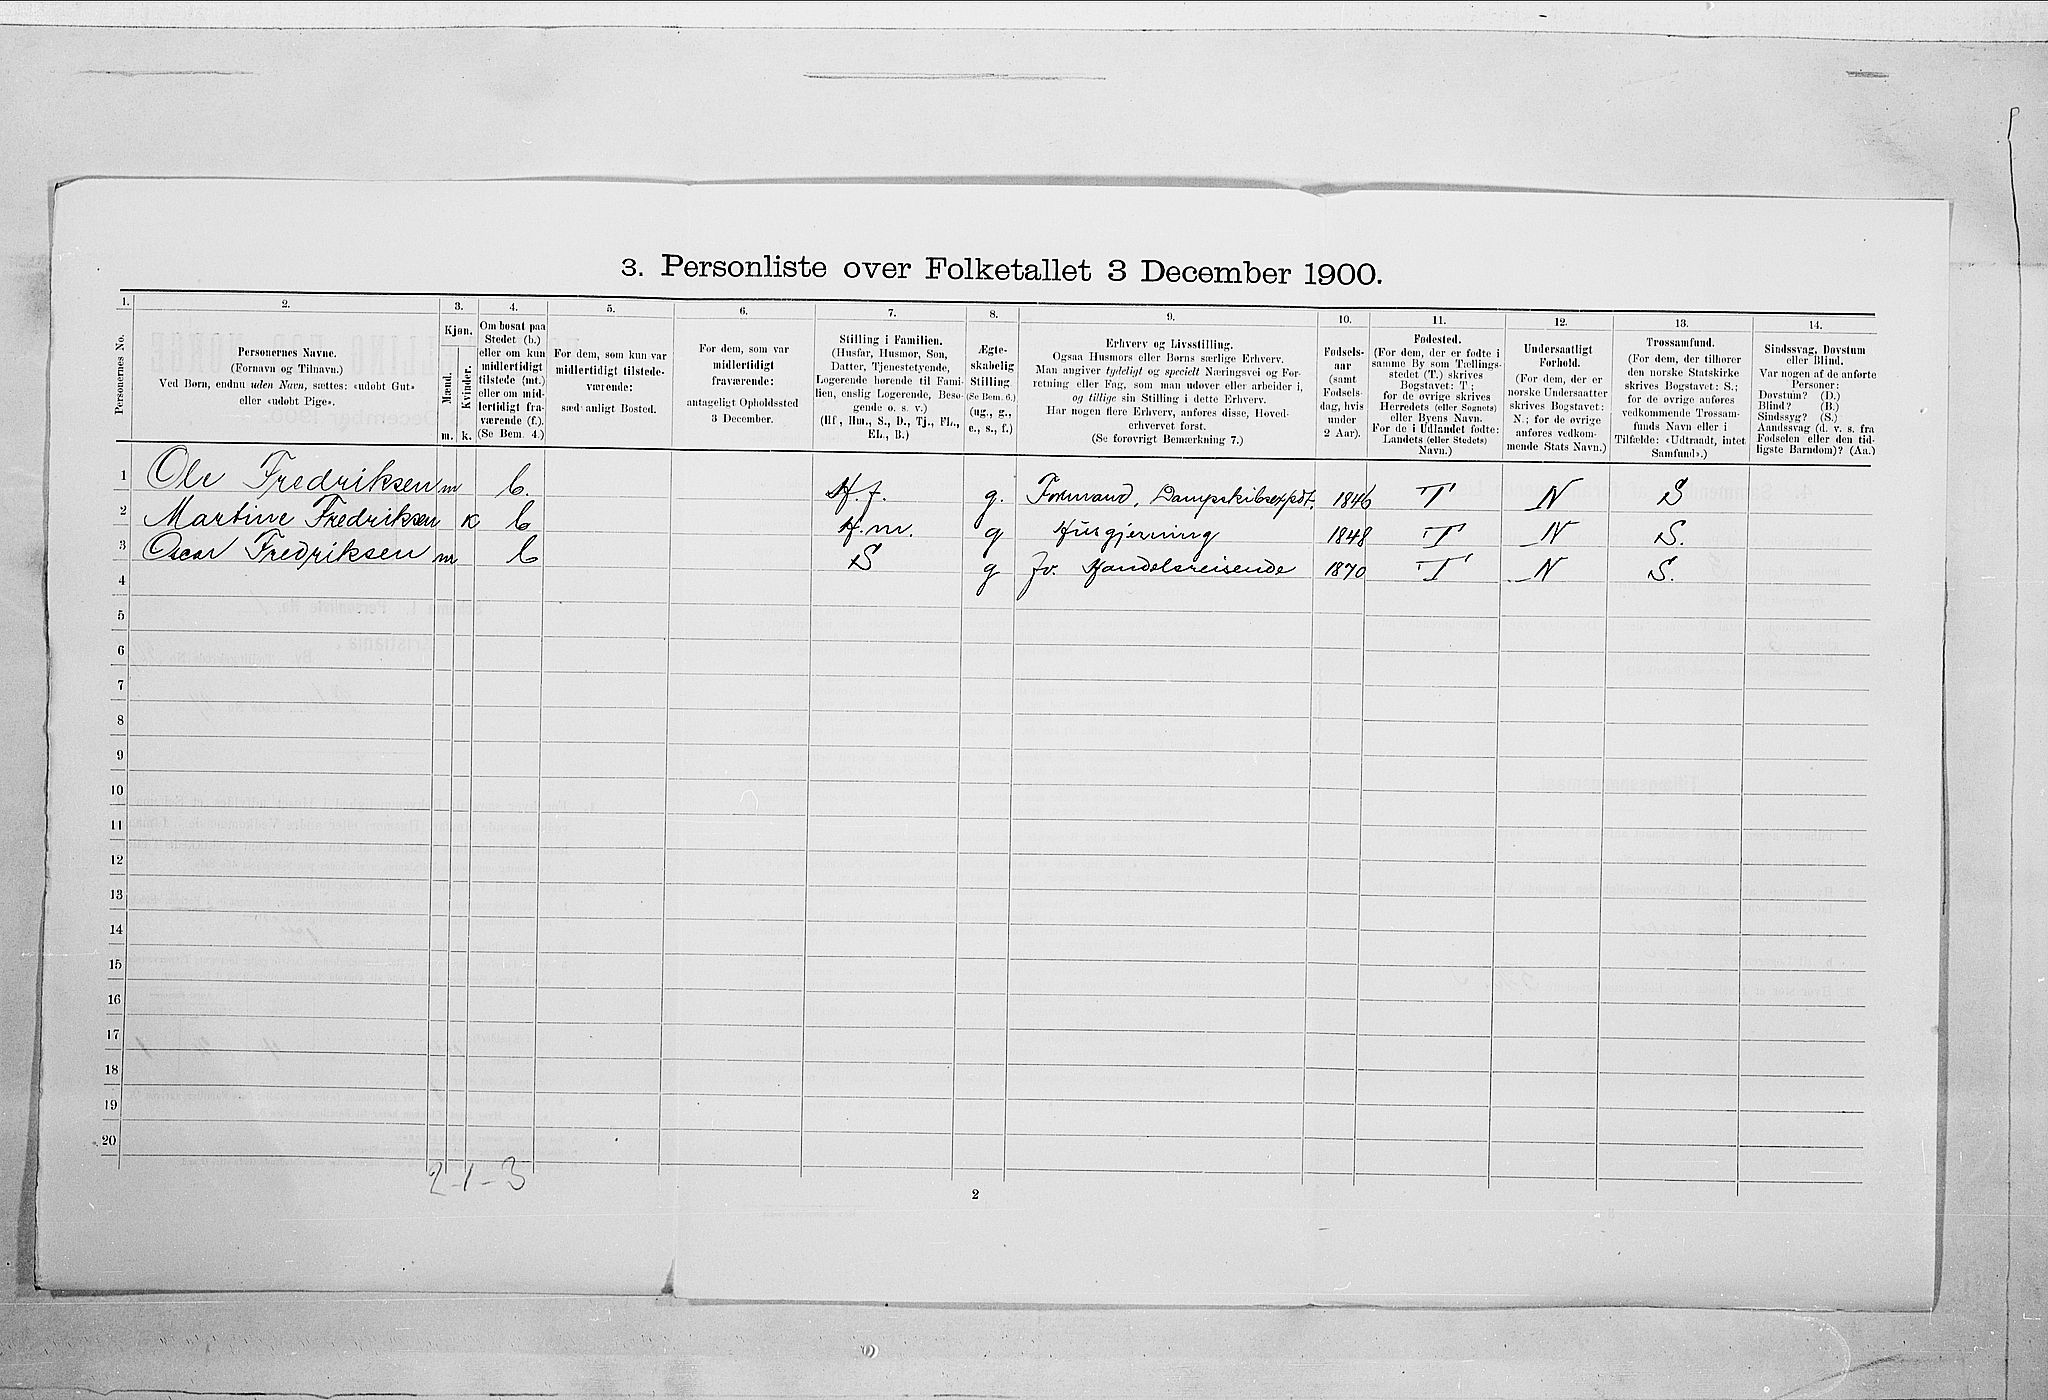 3. Personliste over Folketallet 3 December 1900.
1. 2. 3. 4. 5. 6. 7. 8. 9. 10. 11. 12. 13. 14.
Personernes No.
Personernes Navne.
(Fornavn og Tilnavn.)
Ved Børn, endnu uden Navn, sættes: «udøbt Gut»
eller «udøbt Pige».
Kjøn.
Mænd.
Kvinder.
m. k.
Om bosat paa
Stedet (b.)
eller om kun
midlertidigt
tilstede (mt.)
eller om mid-
lertidigt fra-
værende (f.).
(Se Bem. 4.)
For dem, som kun var
midlertidigt tilstede-
værende:
sædvanligt Bosted.
For dem, som var
midlertidigt
fraværende:
antageligt Opholdssted
3 December.
Stilling i Familien.
(Husfar, Husmor, Søn,
Datter, Tjenestetyende,
Logerende hørende til Fami-
lien, enslig Logerende, Besø-
gende o. s. v.)
(Hf., Hm., S., D., Tj., FL.,
EL., B.)
Ægte-
skabelig
Stilling.
(Se Bem. 6.)
(ug., g.,
e., s., f.)
Erhverv og Livsstilling.
Ogsaa Husmors eller Børns særlige Erhverv.
Man angiver tydeligt og specielt Næringsvei og For-
retning eller Fag, som man udøver eller arbeider i,
og tillige sin Stilling i dette Erhverv.
Har nogen flere Erhverv, anføres disse, Hoved-
erhvervet først.
(Se forøvrigt Bemærkning 7.)
Fødsels-
aar
(samt
Fødsels-
dag, hvis
under
2 Aar).
Fødested.
(For dem, der er fødte i
samme By som Tællings-
stedet (T.) skrives
Bogstavet: T;
for de øvrige skrives
Herredets (eller Sognets)
eller Byens Navn.
For de i Udlandet fødte:
Landets (eller Stedets)
Navn.)
Undersaatligt
Forhold.
(For dem, der er
norske Undersaatter
skrives Bogstavet:
N.; for de øvrige
anføres vedkom-
mende Stats Navn.)
Trossamfund.
(For dem, der tilhører
den norske Statskirke
skrives Bogstavet: S.;
for de øvrige anføres
vedkommende Trossam-
funds Navn eller i
Tilfælde: «Udtraadt, intet
Samfund».)
Sindssvag, Døvstum
eller Blind.
Var nogen af de anførte
Personer:
Døvstum? (D.)
Blind? (B.)
Sindssyg? (S.)
Aandssvag (d. v. s. fra
Fødselen eller den tid-
ligste Barndom)? (Aa.)
1 Ole Fredriksen m b. H.f. g. Formand, Dampskibsexpdt. 1846 T N S
2 Martine Fredriksen K b H.m. g Husgjerning 1848 T N S.
3 Oscar Fredriksen m b S g Fv. Handelsreisende 1870 T N S.
4
5
6
7
8
9
10
11
12
13
14
15
16
17
18
19
20
2-1-3
2